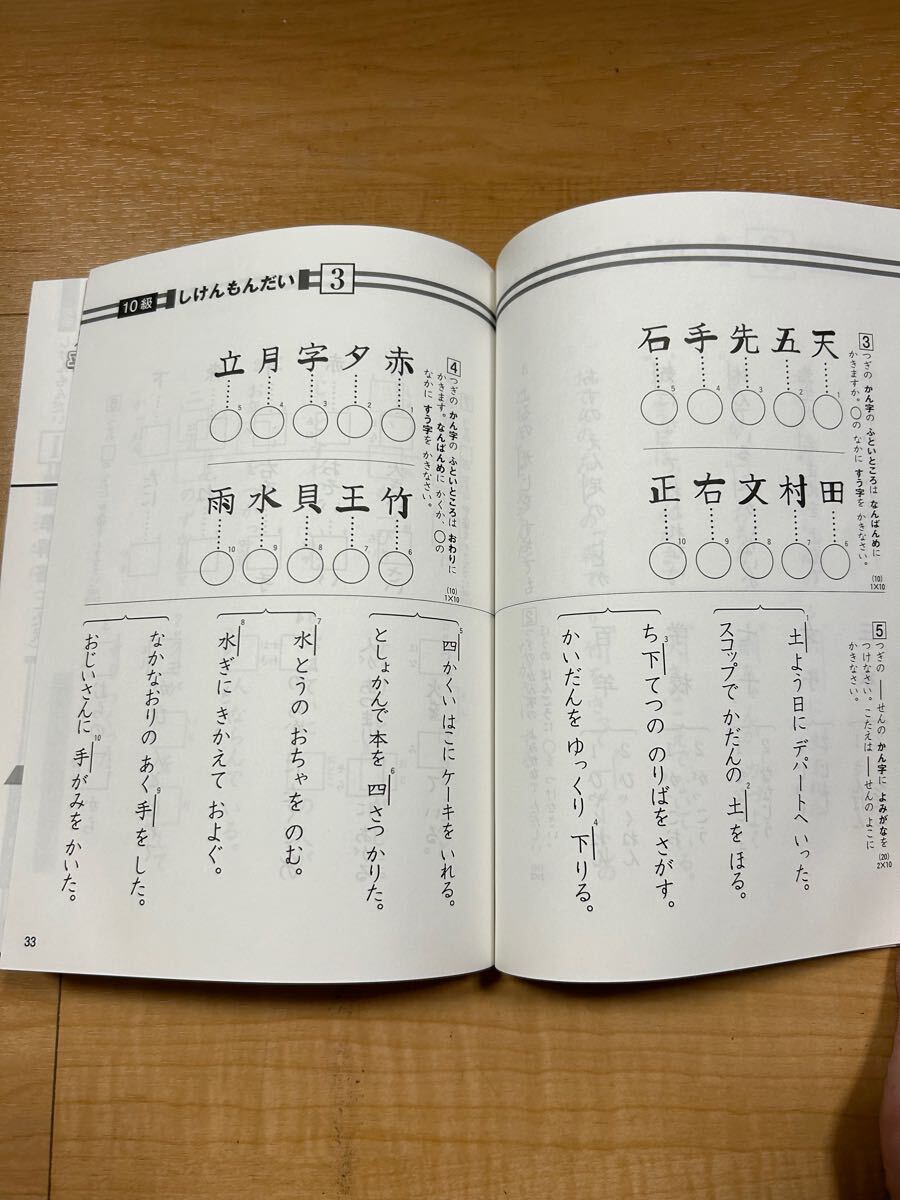 10級 しけんもんだい 3
3
つぎの かん字の ふといところは なんばんめに
かきますか。○の なかに すう字を かきなさい。
(10)
1×10
天 1
五 2
先 3
手 4
石 5
田 6
村 7
文 8
右 9
正 10
4
つぎの かん字の ふといところは おわりに
かきます。なんばんめに かくか、○の
なかに すう字を かきなさい。
(10)
1×10
赤 1
夕 2
字 3
月 4
立 5
竹 6
王 7
貝 8
水 9
雨 10
5
つぎの ―せんの かん字に よみがなを
つけなさい。こたえは ―せんの よこに
かきなさい。
(20)
2×10
1 土よう日に デパートへ いった。
2 スコップで かだんの 土を ほる。
3 ち下てつの のりばを さがす。
4 かいだんを ゆっくり 下りる。
5 四かくい はこに ケーキを いれる。
6 としょかんで 本を 四さつ かりた。
7 水とうの おちゃを のむ。
8 水ぎに きかえて およぐ。
9 なかなおりの あく手を した。
10 おじいさんに 手がみを かいた。
33